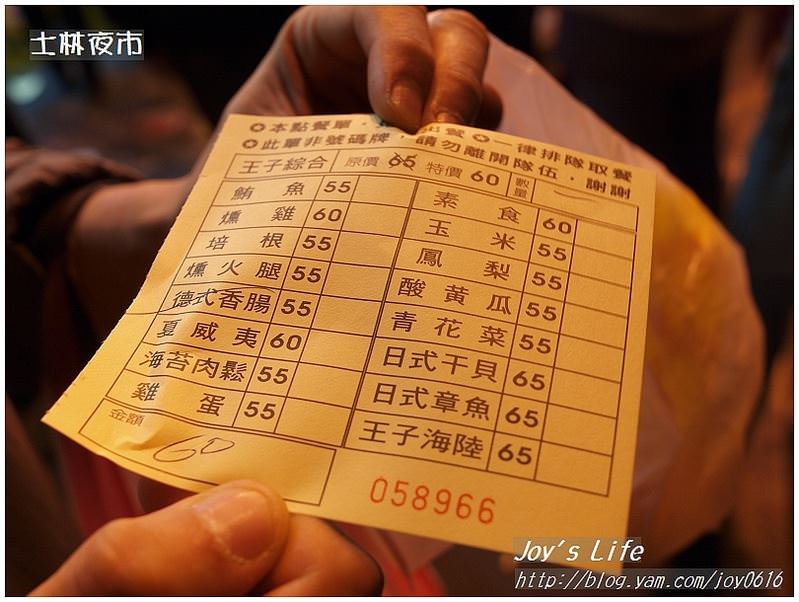 士林夜市
✪本點餐單，出餐✪一律排隊取餐
✪此單非號碼牌，請勿離開隊伍，謝謝
王子綜合 原價 65 特價 60 數量
鮪魚 55
燻雞 60
培根 55
燻火腿 55
德式香腸 55
夏威夷 60
海苔肉鬆 55
雞蛋 55
金額 60
素食 60
玉米 55
鳳梨 55
酸黃瓜 55
青花菜 55
日式干貝 65
日式章魚 65
王子海陸 65
058966
Joy's Life
http://blog.yam.com/joy0616